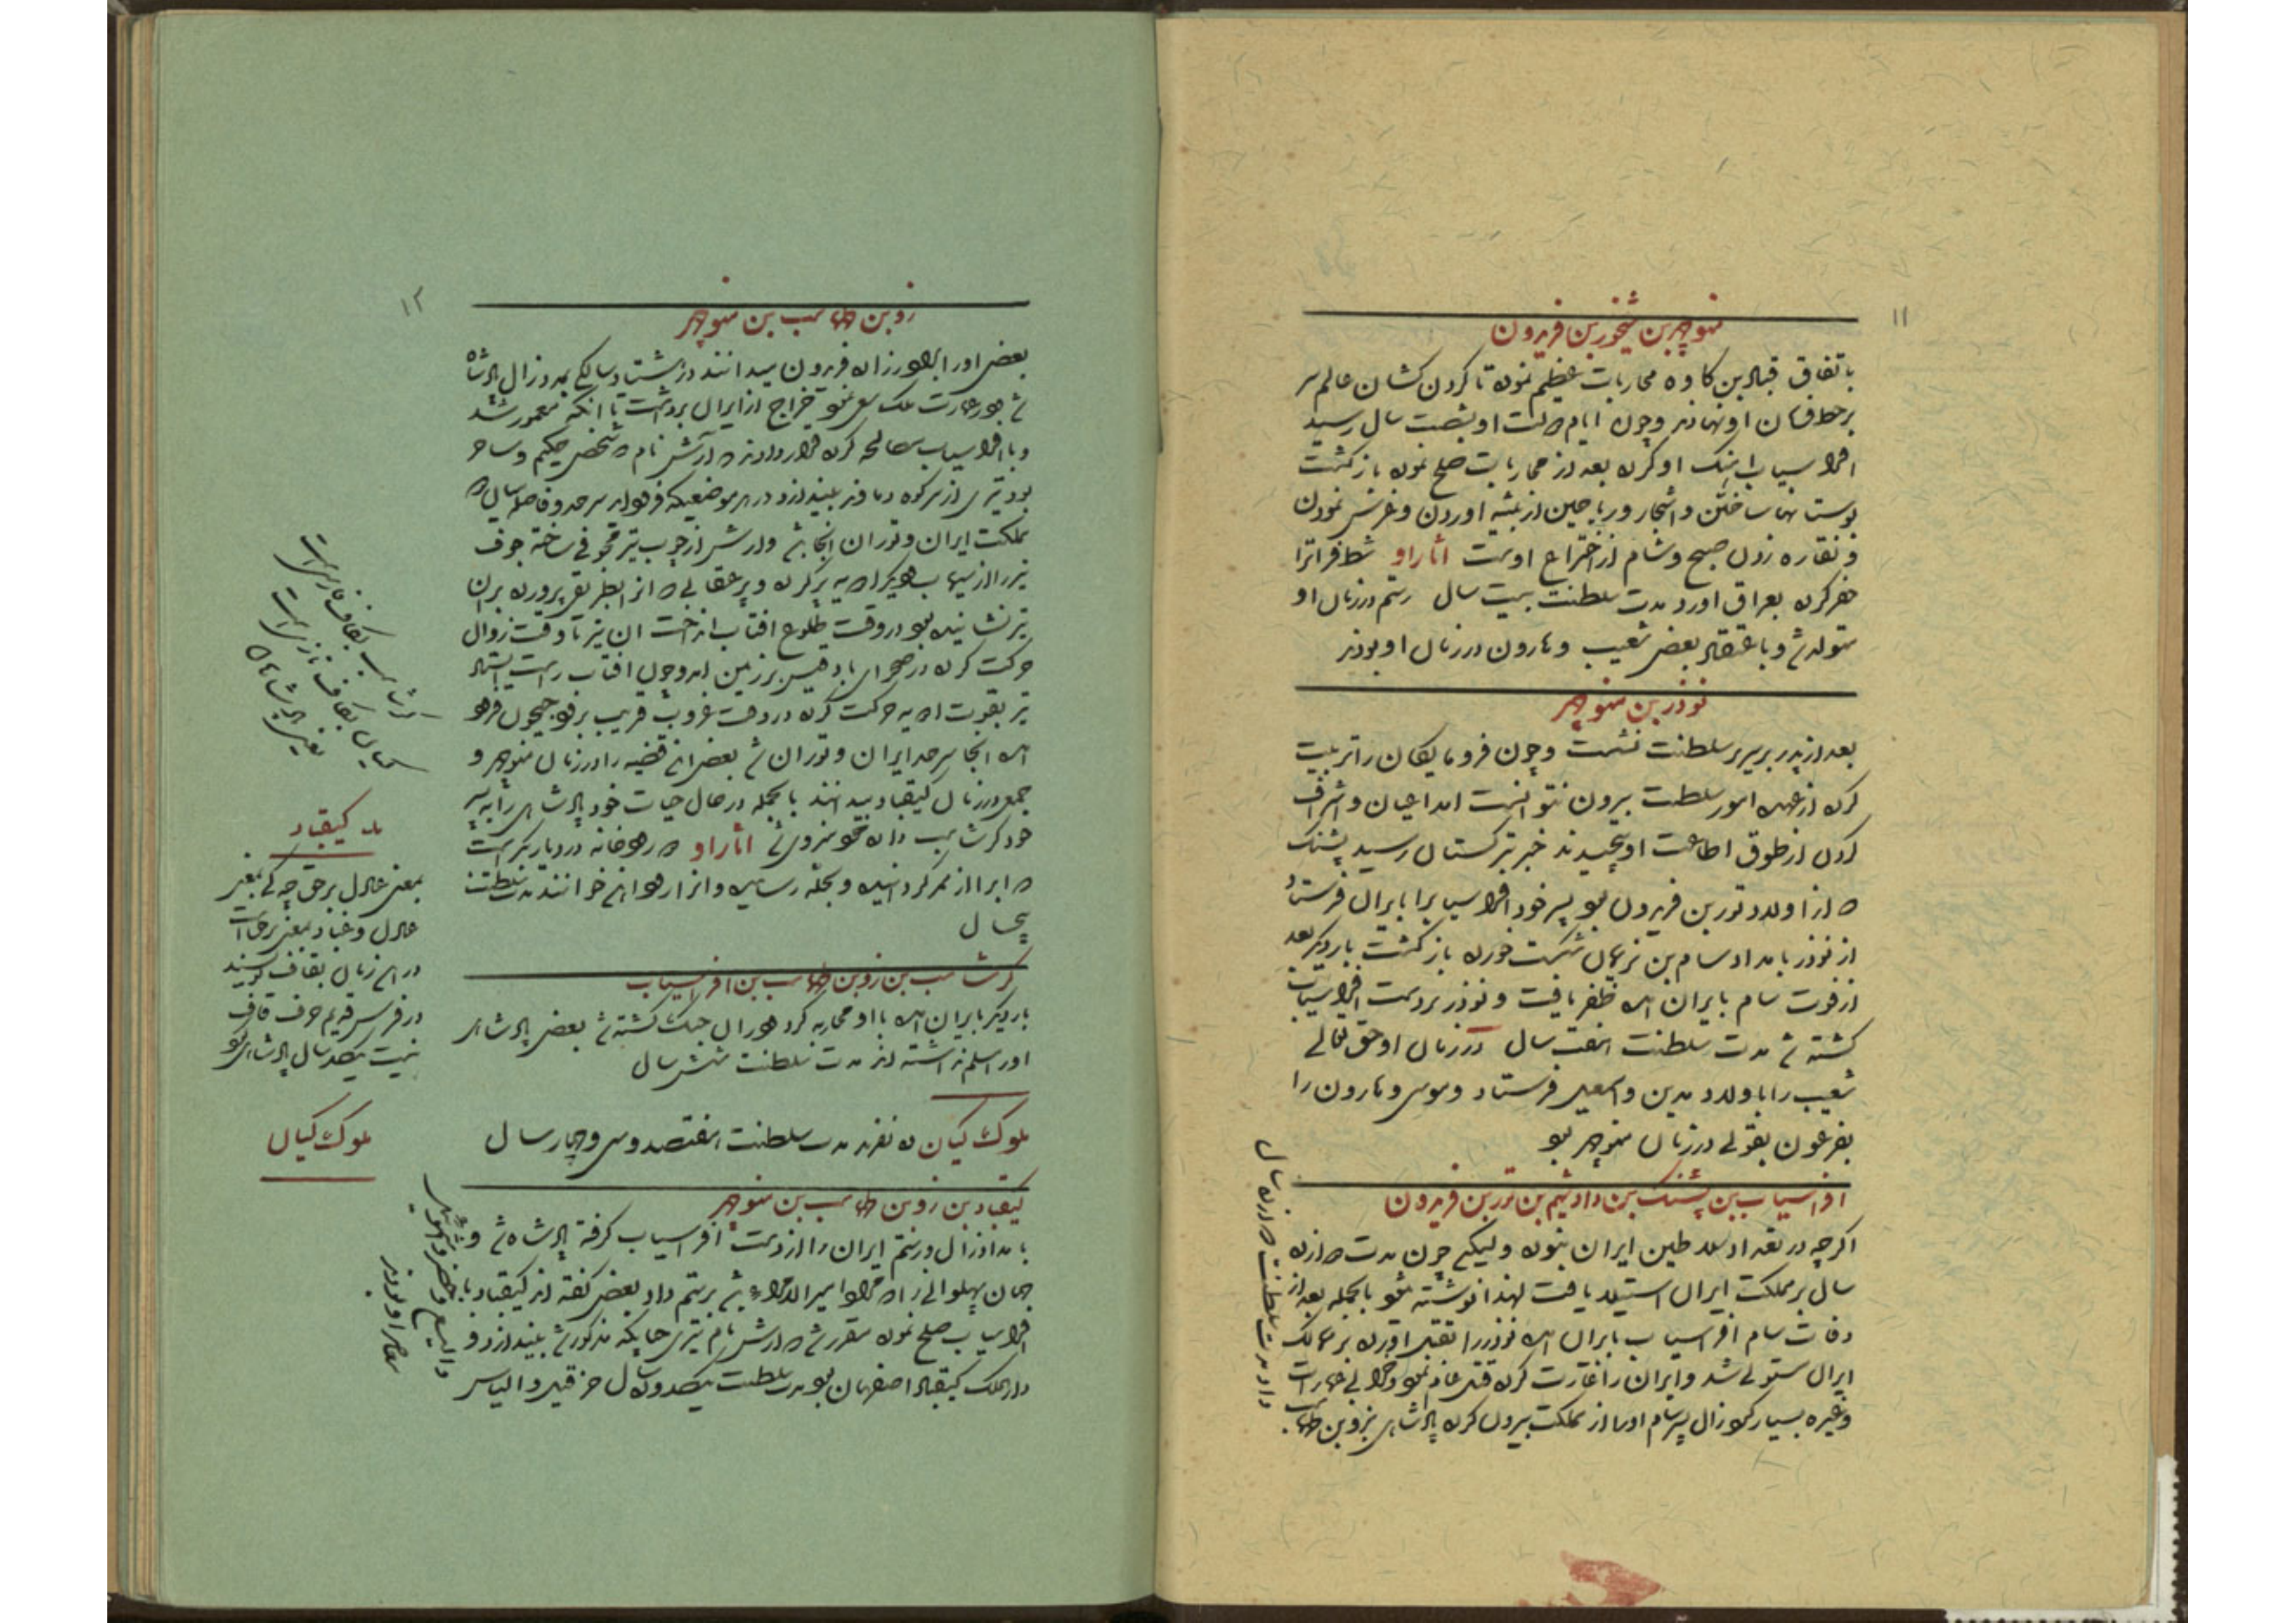 ۱۱
منوچهر بن میشخور بن فریدون
باتفاق قباد بن کاوه محاربات عظیم نموده تا کردن کشان عالم سر
بر خط فرمان او نهادند و چون ایام دولت او بشصت سال رسید
افراسیاب اهنک او کرده بعد از محاربات صلح نموده بازگشت
بوستانها ساختن و اشجار و ریاحین از بیشه اوردن و غرس نمودن
و نقاره زدن صبح و شام از اختراع اوست اثار او شط فراترا
حفر کرده بعراق اورد مدت سلطنت بیست سال رستم در زمان او
متولد شد و باعتقاد بعضی شعیب و هارون در زمان او بودند
نوذر بن منوچهر
بعد از پدر بر سریر سلطنت نشست و چون فرومایکان را تربیت
کرده از عهده امور سلطنت بیرون نتوانست امد اعیان و اشراف
کردن از طوق اطاعت او پیچیدند خبر بترکستان رسید پشنک
که از اولاد تور بن فریدون بود پسر خود افراسیابرا بایران فرستاد
از نوذر بامداد سام بن نریمان شکست خورده بازگشت بار دیکر بعد
از فوت سام بایران امده ظفر یافت و نوذر بر دست افراسیاب
کشته شد مدت سلطنت هفت سال در زمان او حق تعالی
شعیب را باولاد مدین و اسمعیل فرستاد و موسی و هارون را
بفرعون بقولی در زمان منوچهر بود
افراسیاب بن پشنک بن دادشیم بن تور بن فریدون
اکرچه در تعداد سلاطین ایران نبوده ولیکن چون مدت دوازده
سال بر مملکت ایران استیلا یافت لهذا نوشته شود بالجمله بعد از
وفات سام افراسیاب بایران امده نوذر را بقتل اورده بر ممالک
ایران مستولی شد و ایران را غارت کرده قتل عام نمود و خرابی عمارات
و غیره بسیار کرد زال پسر سام او را از مملکت بیرون کرده پادشاهی بزو بن طهماسب
داد مدت سلطنت دوازده سال
۱۲
زو بن طهماسب بن منوچهر
بعضی او را برادرزاده فریدون میدانند در هشتاد سالکی بمدد زال پادشاه
شد و در عمارت ملک سعی نمود خراج از ایران برداشت تا انکه معمور شد
و با افراسیاب مصالحه کرده قرار دادند که آرش نام که شخص حکیم و ساحر
بود تیری از سر کوه دماوند بیندازد در هر موضعیکه فرود اید سرحد و فاصله میان
مملکت ایران و توران انجا باشد و ارش از چوب تیر مجوفی ساخته جوف
تیر را از سیماب و دیکر ادویه پر کرده و پر عقابی که انرا بطریقی پرورده بران
تیر نشانیده بود در وقت طلوع افتاب انداخت ان تیر تا وقت زوال
حرکت کرده در صحرای بادغیس بر زمین امد و چون افتاب راست ایستاد
تیر بقوت ادویه حرکت کرده در وقت غروب قریب برود جیحون فرود
امد انجا سرحد ایران و توران شد بعضی این قضیه را در زمان منوچهر و
جمعی در زمان کیقباد میدانند بالجمله در حال حیات خود پادشاهی را به پسر
خود کرشاسب داده خود منزوی شد اثار او رودخانه در دیار بکر است
که ابرا از ممر کردانیده و بدجله رسانیده و انرا رود اب خوانند مدت سلطنت
پنجسال
کرشاسب بن زو بن طهماسب بن افراسیاب
بار دیکر بایران امده با او محاربه کرد و در ان جنک کشته شد بعضی پادشاهی
او را مسلم نداشته اند مدت سلطنت شش سال
ملوک کیان ده نفرند مدت سلطنت هفتصد و سی و چهار سال
کیقباد بن زو بن طهماسب بن منوچهر
بامداد زال و رستم ایران را از دست افراسیاب کرفته پادشاه شد و
جهان پهلوانی که مراد امیر الامراء باشد برستم داد بعضی کفته اند کیقباد با
افراسیاب صلح نموده مقرر شد که ارش نام تیری چنانکه مذکور شد بیندازد و
دار الملک کیقباد اصفهان بود مدت سلطنت یکصد و سال حزقیل و الیاس
و الیسع و خضر و اشمویل
معاصر او بودند
کرشاسب بکاف فارسی است
کیان بکاف تازی است
یعنی پادشاهان
کیقباد
بمعنی عادل بر حق چه کی بمعنی
عادل و غباد بمعنی برحق است
در این زمان بقاف کویند
در فرس قدیم حرف قاف
نیست یکصد سال پادشاهی بود
ملوک کیان